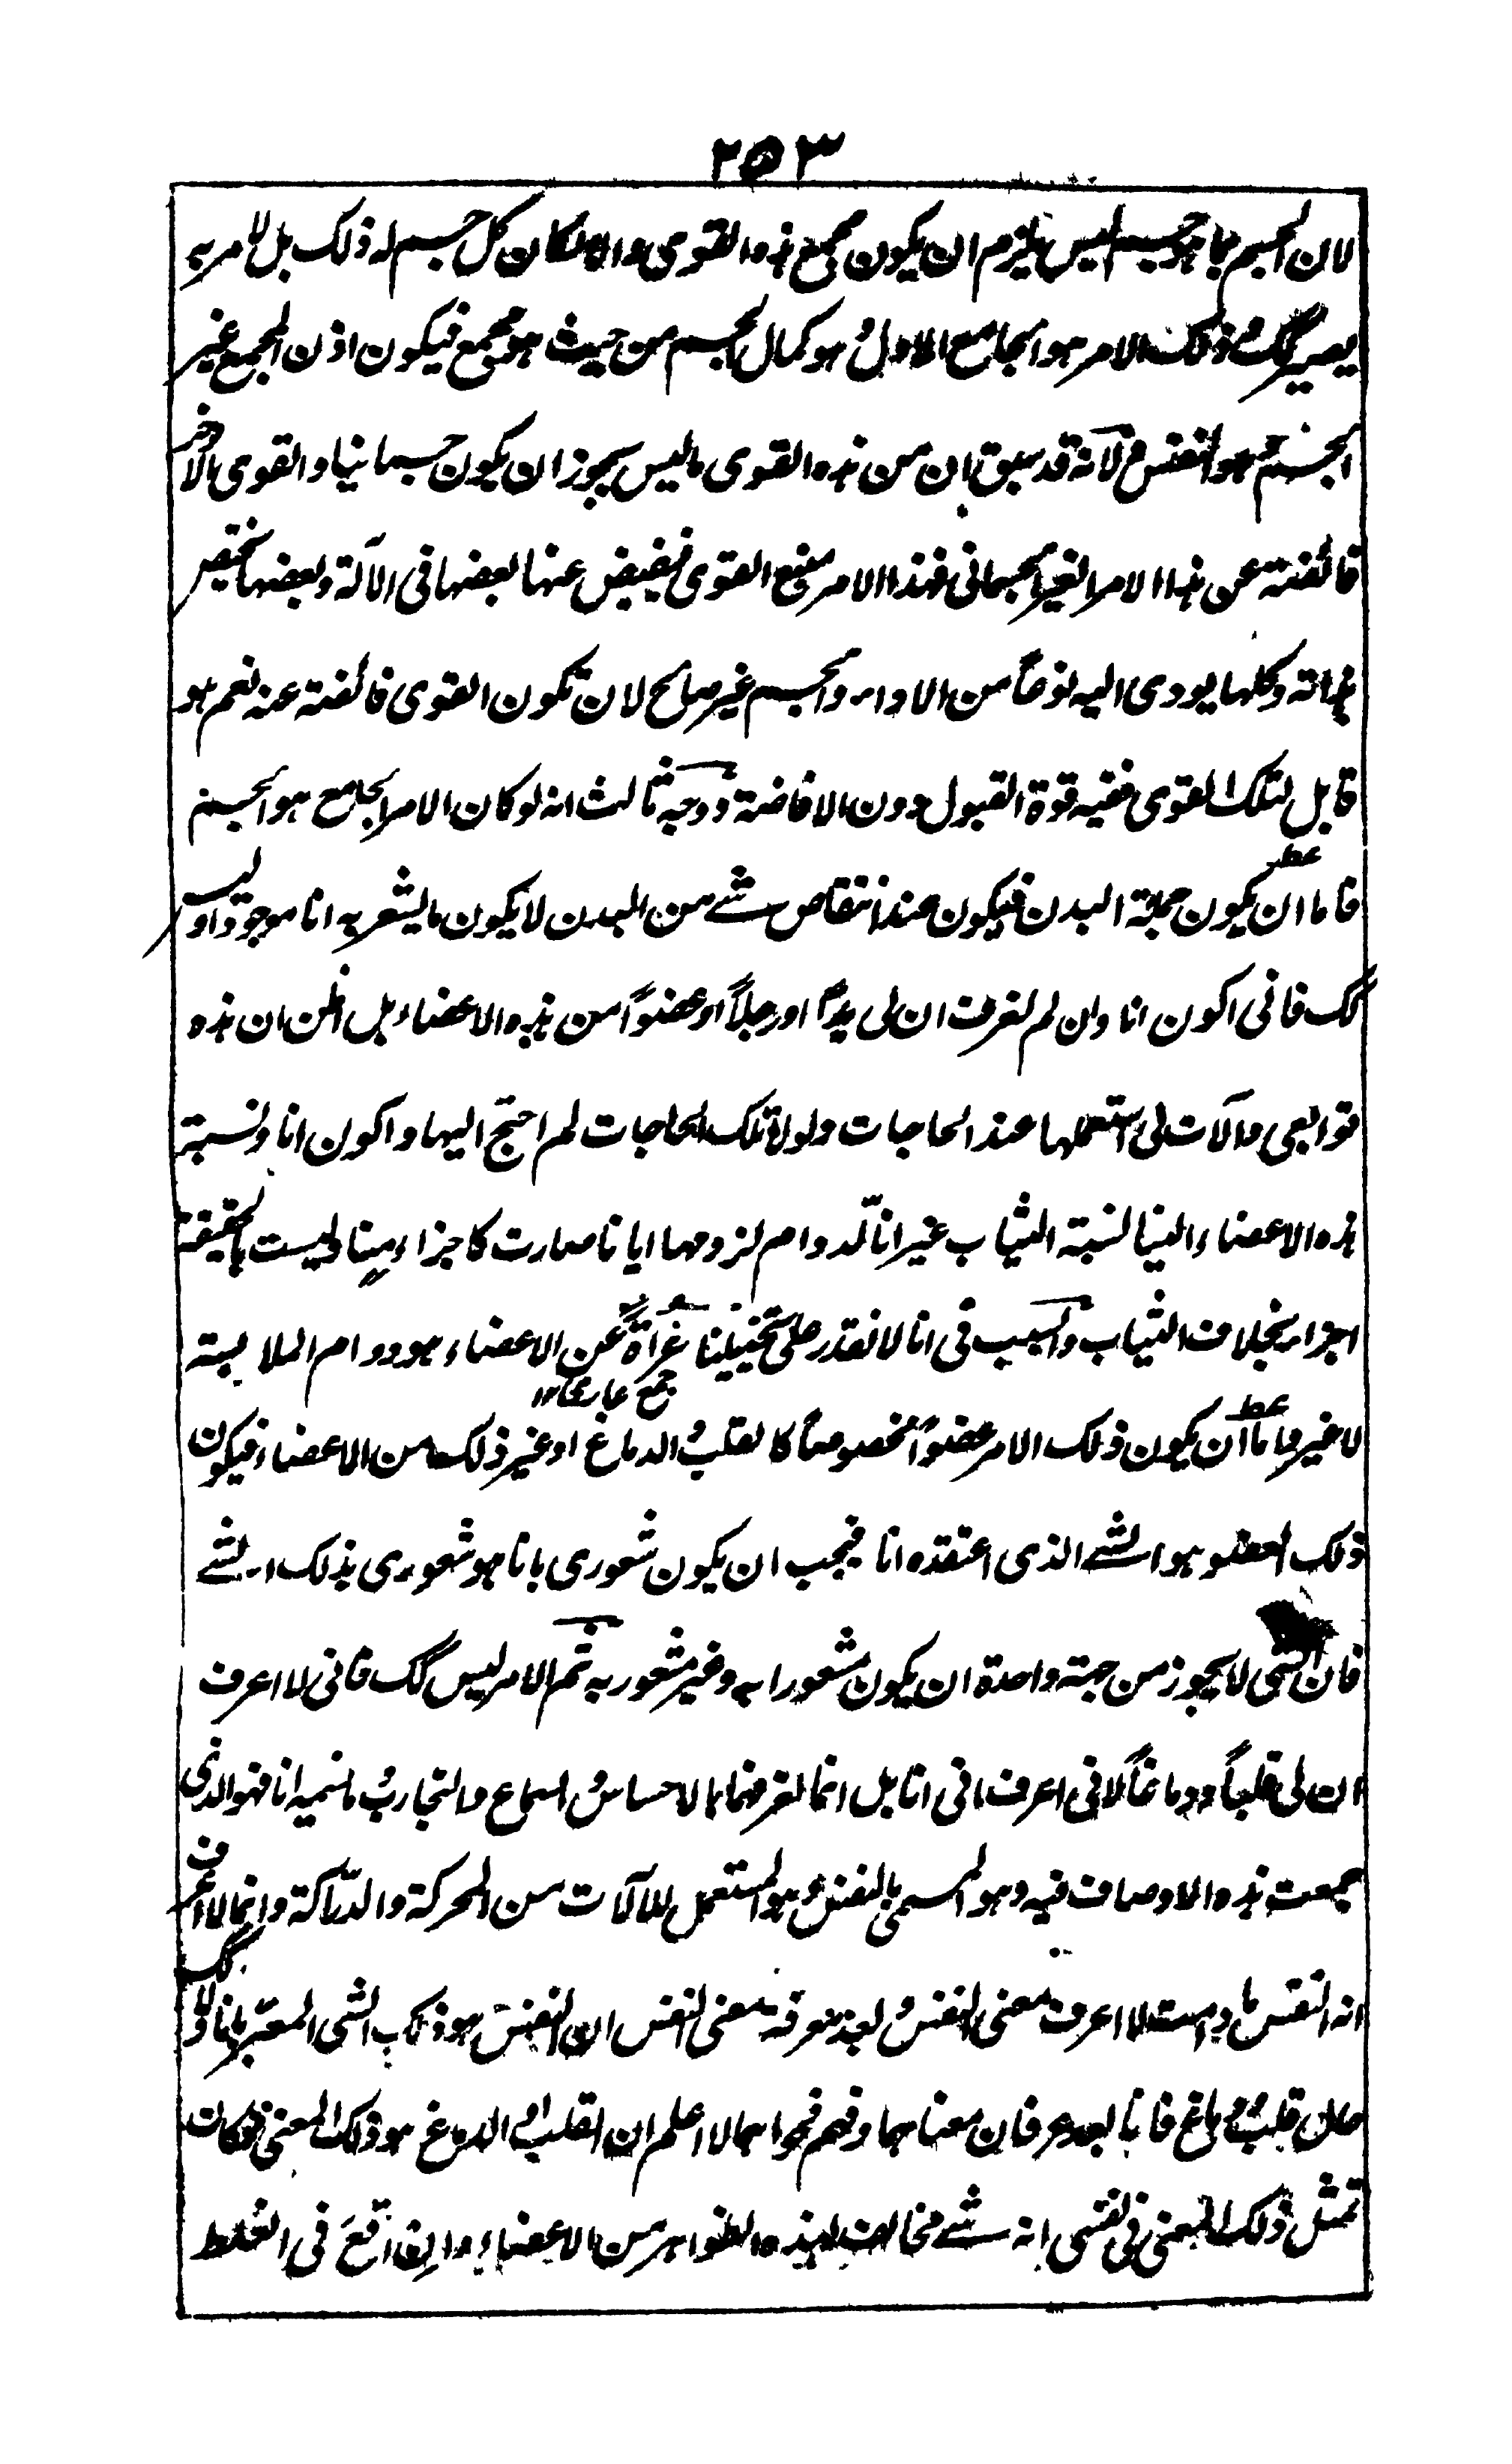 ٢٥٣
لان الجسم بما هو جسم ليس يلزم ان يكون مجمع هذه القوى والا لكان كل جسم له ذلك بل لامر به
يصير كك وذلك الامر هو الجامع الاول و هو كمال الجسم من حيث هو مجمع فيكون اذن المجمع غير
الجسم وهو النفس و لانه قد سبق ان من هذه القوى ما ليس يجوز ان يكون جسمانيا والقوى الاخر
فائضة عن هذا الامر الغير الجسمانى فهذا الامر منبع القوى فيفيض عنها بعضها فى الآلة وبعضها يختص
بذاته وكلها يودى اليه نوعاً من الاداء والجسم غير صالح لان تكون القوى فائضة عنه نعم هو
قابل لتلك القوى ففيه قوة القبول دون الافاضة ووجه ثالث انه لو كان الامر الجامع هو الجسم
فاما ان يكون جملة البدن فيكون عند انتقاص شے من البدن لا يكون ما يشعر به انا موجودا وليس
كك فانى اكون انا وان لم نعرف ان لى يداً او رجلاً او عضواً من هذه الاعضاء بل اظن ان هذه
توابعى وآلات لى استعملها عند الحاجات ولولا تلك الحاجات لم احتج اليها واكون انا ونسبة
هذه الاعضاء الينا نسبة الثياب غير انا لدوام لزومها ايانا صارت كاجزاء منا وليست بالحقيقة
اجزاء بخلاف الثياب والسبب فى انا لا نقدر على تخييلنا عراةً عن الاعضاء هو دوام الملابسة
جمع عار ١٢
لا غير واما ان يكون ذلك الامر عضواً مخصوصاً كالقلب و الدماغ او غير ذلك من الاعضاء فيكون
ذلك العضو هو الشے الذى اعتقده انا فيجب ان يكون شعورى بانا هو شعورى بذلك الشے
فان الشى لا يجوز من جهة واحدة ان يكون مشعورا به وغير مشعور به ثم الامر ليس كك فانى لا اعرف
ان لى قلباً ودماغاً لانى اعرف انى انا بل انما نعرفهما بالاحساس و السماع والتجارب و ما نسميه انا فهو الذى
جمعت هذه الاوصاف فيه وهو المسمى بالنفس و هو المستعمل للآلات من المحركة والدراكة وانما لا اعرف
انه النفس ما دمت لا اعرف معنى النفس و بعد معرفة معنى النفس ان النفس هو ذلك الشى المعبر بانا ولا كك
حال قلب و دماغ فانا بعد عرفان معناهما وفهم فحواهما لا اعلم ان القلب و الدماغ هو ذلك المعنى فكان
تمثل ذلك المعنى فى نفسى انه شے مخالف لهذه الظواهر من الاعضاء وان اقع فى الغلط